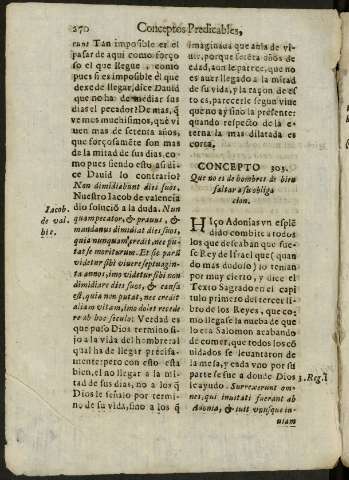 270 Conceptos Predicables,
runt Tan impossible es el
passar de aqui como forço
so el que llegue, como
pues si es impossible el que
dexe de llegar, dize Dauid
que no ha de mediar sus
dias el pecador? De mas, q̃
vemos muchissimos, què vi
uen mas de setenta años,
que forçosamẽte son mas
de la mitad de sus dias, co
mo pues siendo esto assi di
ce Dauid lo contrario?
Non dimidiabunt dies suos.
Nuestro Iacob de valencia
dio solució a la duda. Nun
quam peccator, & prauus, &
mundanus dimidiat dies suos,
quia nunquam credit, nec pu-
tat se moriturum. Et sic parũ
videtur sibi viuere septuagin-
ta annos, imo videtur sibi non
dimidiare dies suos, & causa
est, quia non putat, nec credit
aliam vitam, imo dolet recede
re ab hoc seculo: Verdad es
que puso Dios termino fi-
jo a la vida del hombre al
qual ha de llegar precisa-
mente: pero con esto esta
bien, el no llegar a la mi-
tad de sus dias, no a los q̃
Dios le señalo por termi-
no de su vida, sino a los q̃
Iacob.
de val-
bic.
imaginaua que auia de vi-
uir, porque setẽta años de
edad, aun le parece, que no
es auer llegado a la mitad
de su vida, y la raçon de es
to es, parecerle segun viue
que no ay sino la presente:
quando respecto de la e-
terna la mas dilatada es
corta.
CONCEPTO 303.
Que no es de hombres de bien
faltar a su obliga
cion.
HIço Adonias vn esplẽ
dido combite a todos
los que deseaban que fue-
se Rey de Israel que (quan
do mas dudolo) lo tenian
por muy cierto, y dice el
Texto Sagrado en el capi
tulo primero del tercer li
bro de los Reyes, que co-
mo llegase la nueba de que
lo era Salomon acabando
de comer, que todos los cõ
uidados se levantaron de
la mesa, y cada vno por su
parte se fue a donde Dios
le ayudo. Surrexerunt om-
nes, qui inuitati fuerant ab
Adonia, & iuit vnusquisque in
3. Reg. 1
uiam